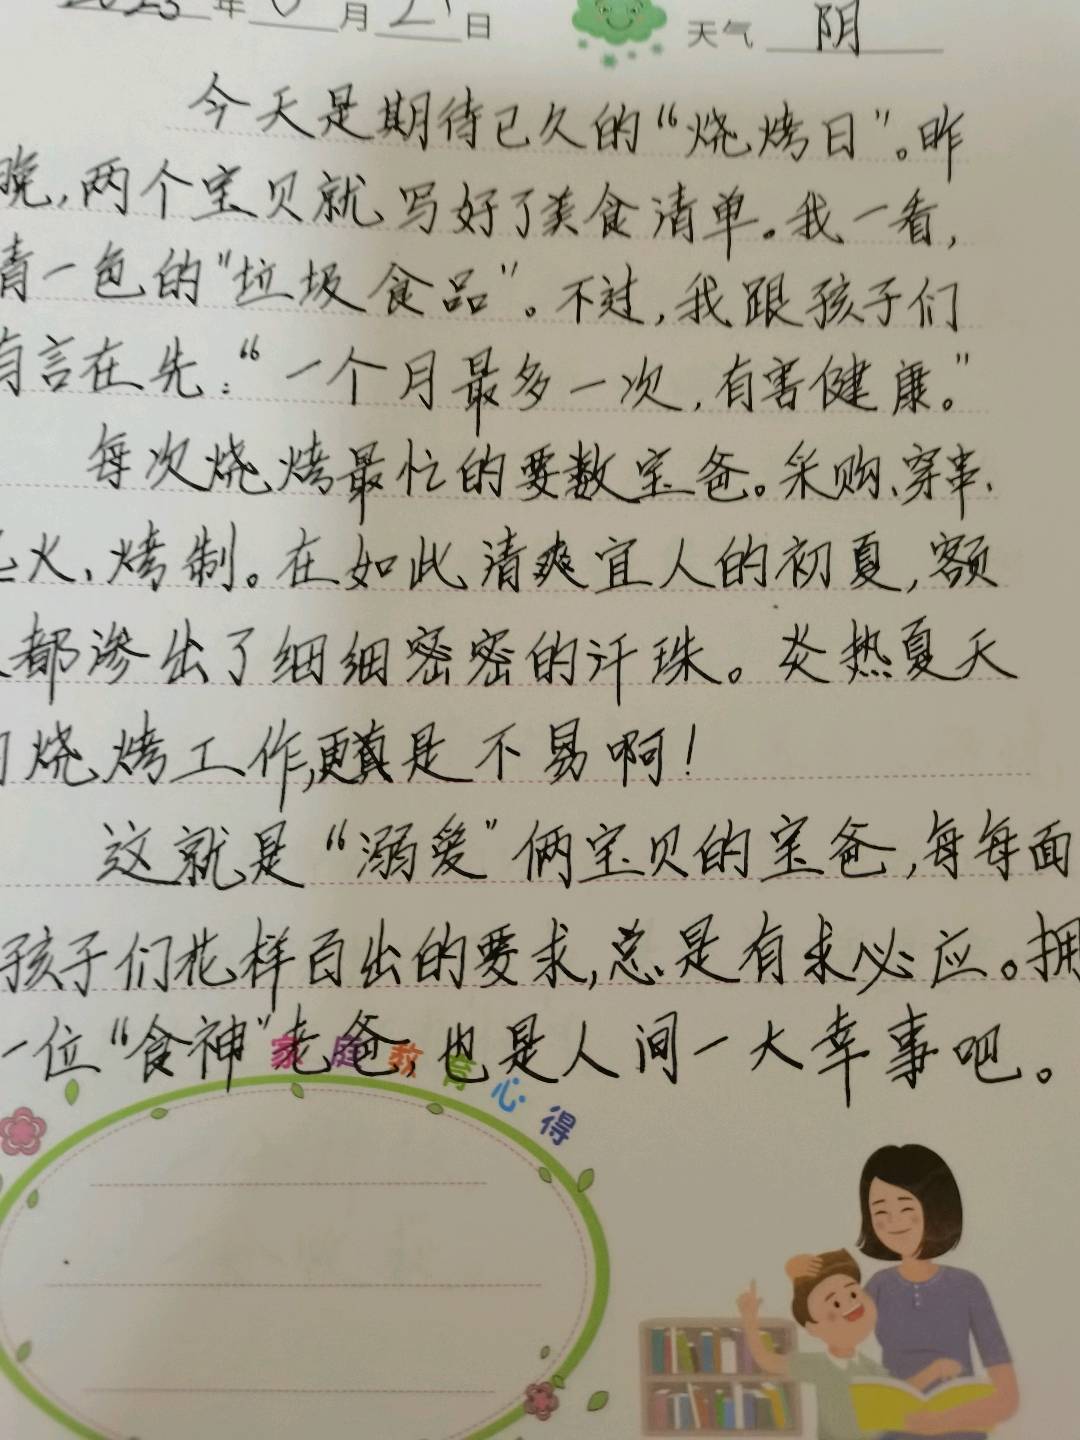 年 月 日 天气 阴
今天是期待已久的“烧烤日”。昨
晚,两个宝贝就写好了美食清单。我一看,
清一色的“垃圾食品”。不过,我跟孩子们
有言在先:“一个月最多一次,有害健康。”
每次烧烤最忙的要数宝爸。采购、穿串、
火、烤制。在如此清爽宜人的初夏,额
都渗出了细细密密的汗珠。炎热夏天
烧烤工作,更真是不易啊!
这就是“溺爱”俩宝贝的宝爸,每每面
孩子们花样百出的要求,总是有求必应。拥
一位“食神”老爸,也是人间一大幸事吧。
家庭教育心得